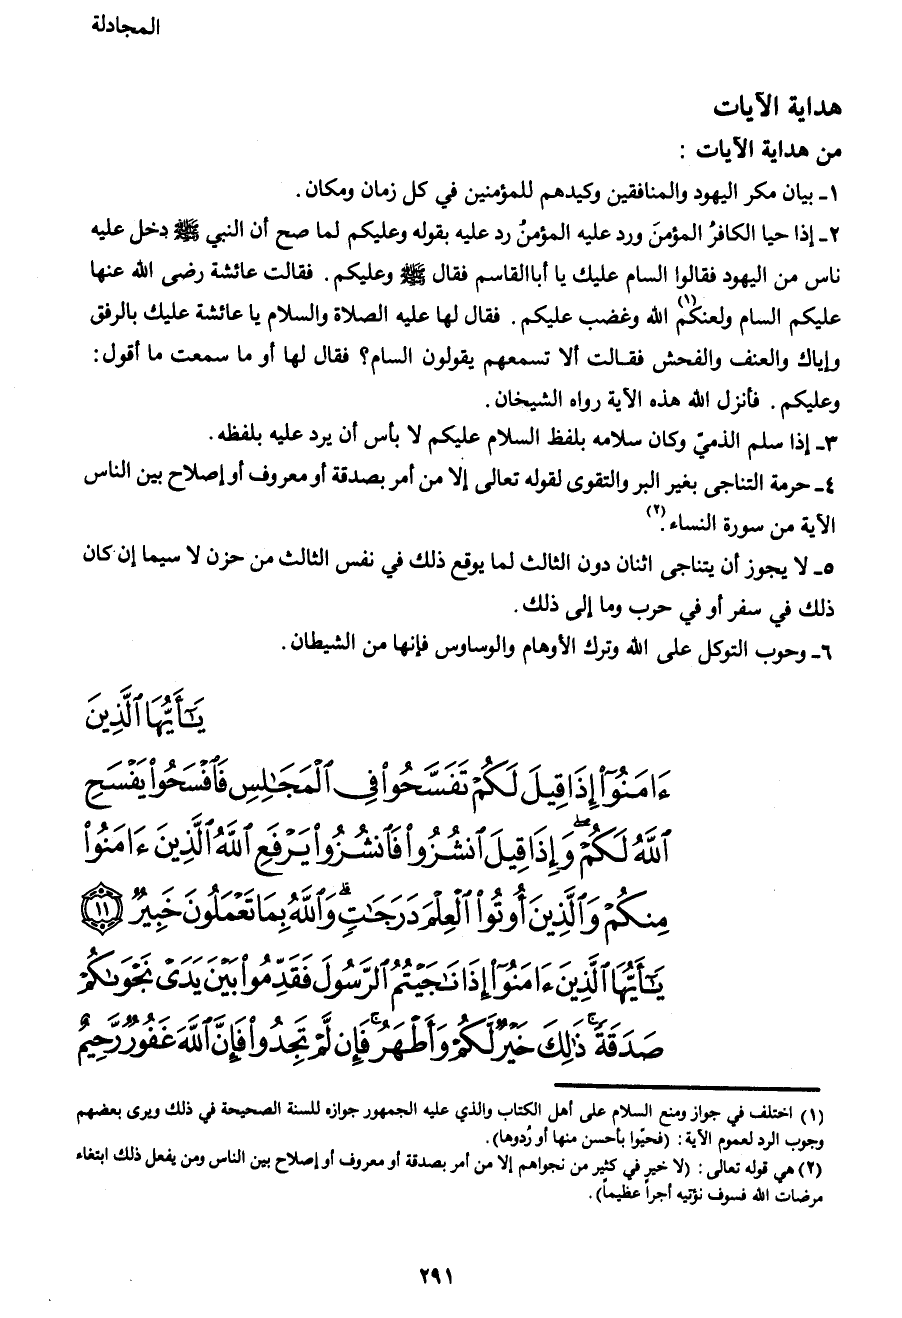 المجادلة
هداية الآيات
من هداية الآيات :
١ـ بيان مكر اليهود والمنافقين وكيدهم للمؤمنين في كل زمان ومكان.
٢ـ إذا حيا الكافرُ المؤمنَ ورد عليه المؤمنُ رد عليه بقوله وعليكم لما صح أن النبي ﷺ دخل عليه
ناس من اليهود فقالوا السام عليك يا أباالقاسم فقال ﷺ وعليكم. فقالت عائشة رضى الله عنها
عليكم السام ولعنكم(١) الله وغضب عليكم. فقال لها عليه الصلاة والسلام يا عائشة عليك بالرفق
وإياك والعنف والفحش فقالت ألا تسمعهم يقولون السام؟ فقال لها أو ما سمعت ما أقول:
وعليكم. فأنزل الله هذه الآية رواه الشيخان.
٣ـ إذا سلم الذميّ وكان سلامه بلفظ السلام عليكم لا بأس أن يرد عليه بلفظه.
٤ـ حرمة التناجى بغير البر والتقوى لقوله تعالى إلا من أمر بصدقة أو معروف أو إصلاح بين الناس
الآية من سورة النساء.(٢)
٥ـ لا يجوز أن يتناجى اثنان دون الثالث لما يوقع ذلك في نفس الثالث من حزن لا سيما إن كان
ذلك في سفر أو في حرب وما إلى ذلك.
٦ـ وحوب التوكل على الله وترك الأوهام والوساوس فإنها من الشيطان.
يَٰٓأَيُّهَا ٱلَّذِينَ
ءَامَنُوٓا۟ إِذَا قِيلَ لَكُمْ تَفَسَّحُوا۟ فِى ٱلْمَجَٰلِسِ فَٱفْسَحُوا۟ يَفْسَحِ
ٱللَّهُ لَكُمْ ۖ وَإِذَا قِيلَ ٱنشُزُوا۟ فَٱنشُزُوا۟ يَرْفَعِ ٱللَّهُ ٱلَّذِينَ ءَامَنُوا۟
مِنكُمْ وَٱلَّذِينَ أُوتُوا۟ ٱلْعِلْمَ دَرَجَٰتٍ ۚ وَٱللَّهُ بِمَا تَعْمَلُونَ خَبِيرٌ ١١
يَٰٓأَيُّهَا ٱلَّذِينَ ءَامَنُوٓا۟ إِذَا نَٰجَيْتُمُ ٱلرَّسُولَ فَقَدِّمُوا۟ بَيْنَ يَدَىْ نَجْوَىٰكُمْ
صَدَقَةً ۚ ذَٰلِكَ خَيْرٌ لَّكُمْ وَأَطْهَرُ ۚ فَإِن لَّمْ تَجِدُوا۟ فَإِنَّ ٱللَّهَ غَفُورٌ رَّحِيمٌ
(١) اختلف في جواز ومنع السلام على أهل الكتاب والذي عليه الجمهور جوازه للسنة الصحيحة في ذلك ويرى بعضهم
وجوب الرد لعموم الآية: (فحيّوا بأحسن منها أو رُدوها).
(٢) هي قوله تعالى: (لا خير في كثير من نجواهم إلا من أمر بصدقة أو معروف أو إصلاح بين الناس ومن يفعل ذلك ابتغاء
مرضات الله فسوف نؤتيه أجراً عظيماً).
٢٩١